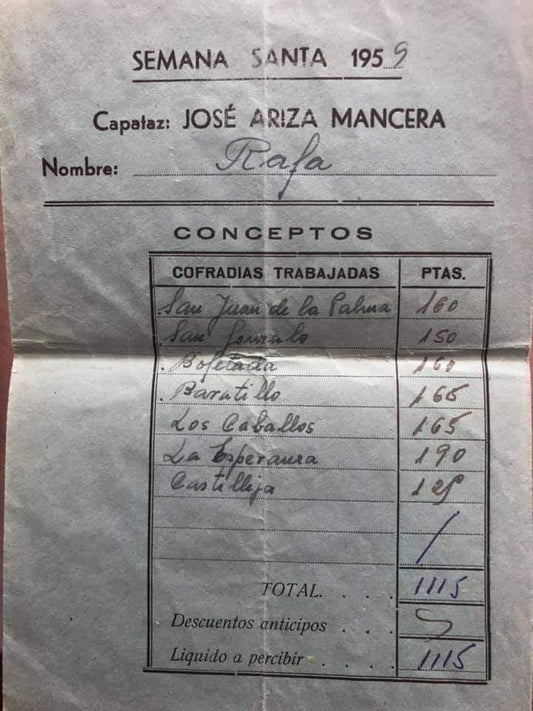 SEMANA SANTA 1959
Capataz: JOSÉ ARIZA MANCERA
Nombre: Rafa
CONCEPTOS
COFRADIAS TRABAJADAS PTAS.
San Juan de la Palma 160
San Gonzalo 150
Bofetada 160
Baratillo 165
Los Caballos 165
La Esperanza 190
Castilleja 125
TOTAL. . . 1115
Descuentos anticipos . . .
Liquido a percibir . . . . 1115